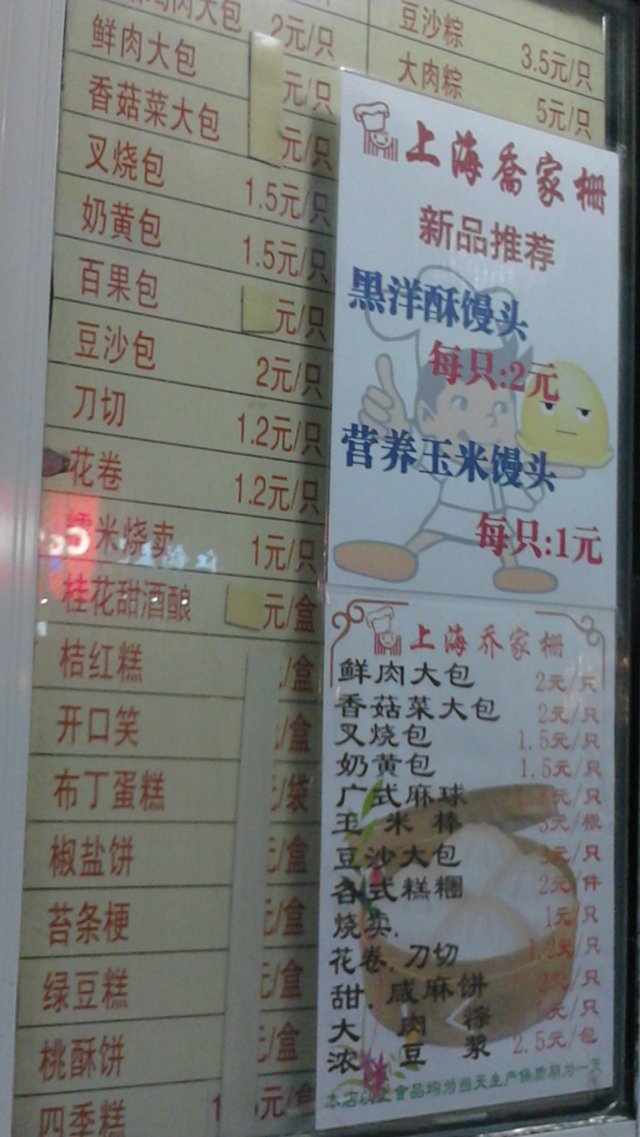 肉大包 2元/只
鲜肉大包 元/只
香菇菜大包 元/只
叉烧包 1.5元/只
奶黄包 1.5元/只
百果包 元/只
豆沙包 2元/只
刀切 1.2元/只
花卷 1.2元/只
糯米烧卖 1元/只
桂花甜酒酿 元/盒
桔红糕 /盒
开口笑 /盒
布丁蛋糕 /袋
椒盐饼 元/盒
苔条梗 元/盒
绿豆糕 元/盒
桃酥饼 元/盒
四季糕 元/盒
豆沙粽 3.5元/只
大肉粽 5元/只
上海喬家栅
新品推荐
黑洋酥馒头
每只:2元
营养玉米馒头
每只:1元
上海乔家栅
鲜肉大包 2元/只
香菇菜大包 2元/只
叉烧包 1.5元/只
奶黄包 1.5元/只
广式麻球 元/只
玉米棒 3元/根
豆沙大包 2元/只
各式糕糰 2元/件
烧卖. 1元/只
花卷.刀切 1.2元/只
甜.咸麻饼 元/只
大肉粽 元/只
浓豆浆 2.5元/包
本店以上食品均为当天生产保质期为一天